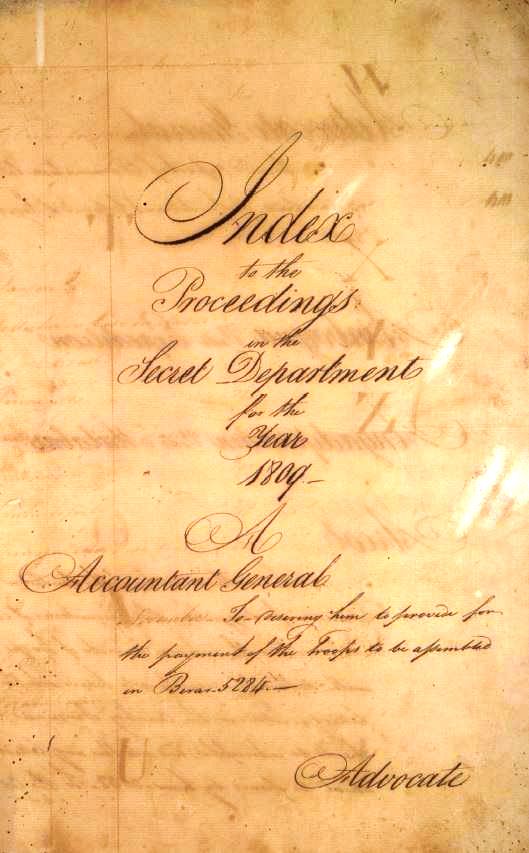 Index
to the
Proceedings
in the
Secret Department
for the
Year
1809_
A
Accountant General
To_ desering him to provide for
the payment of the Troops to be assembled
in Berar. 5284._
Advocate